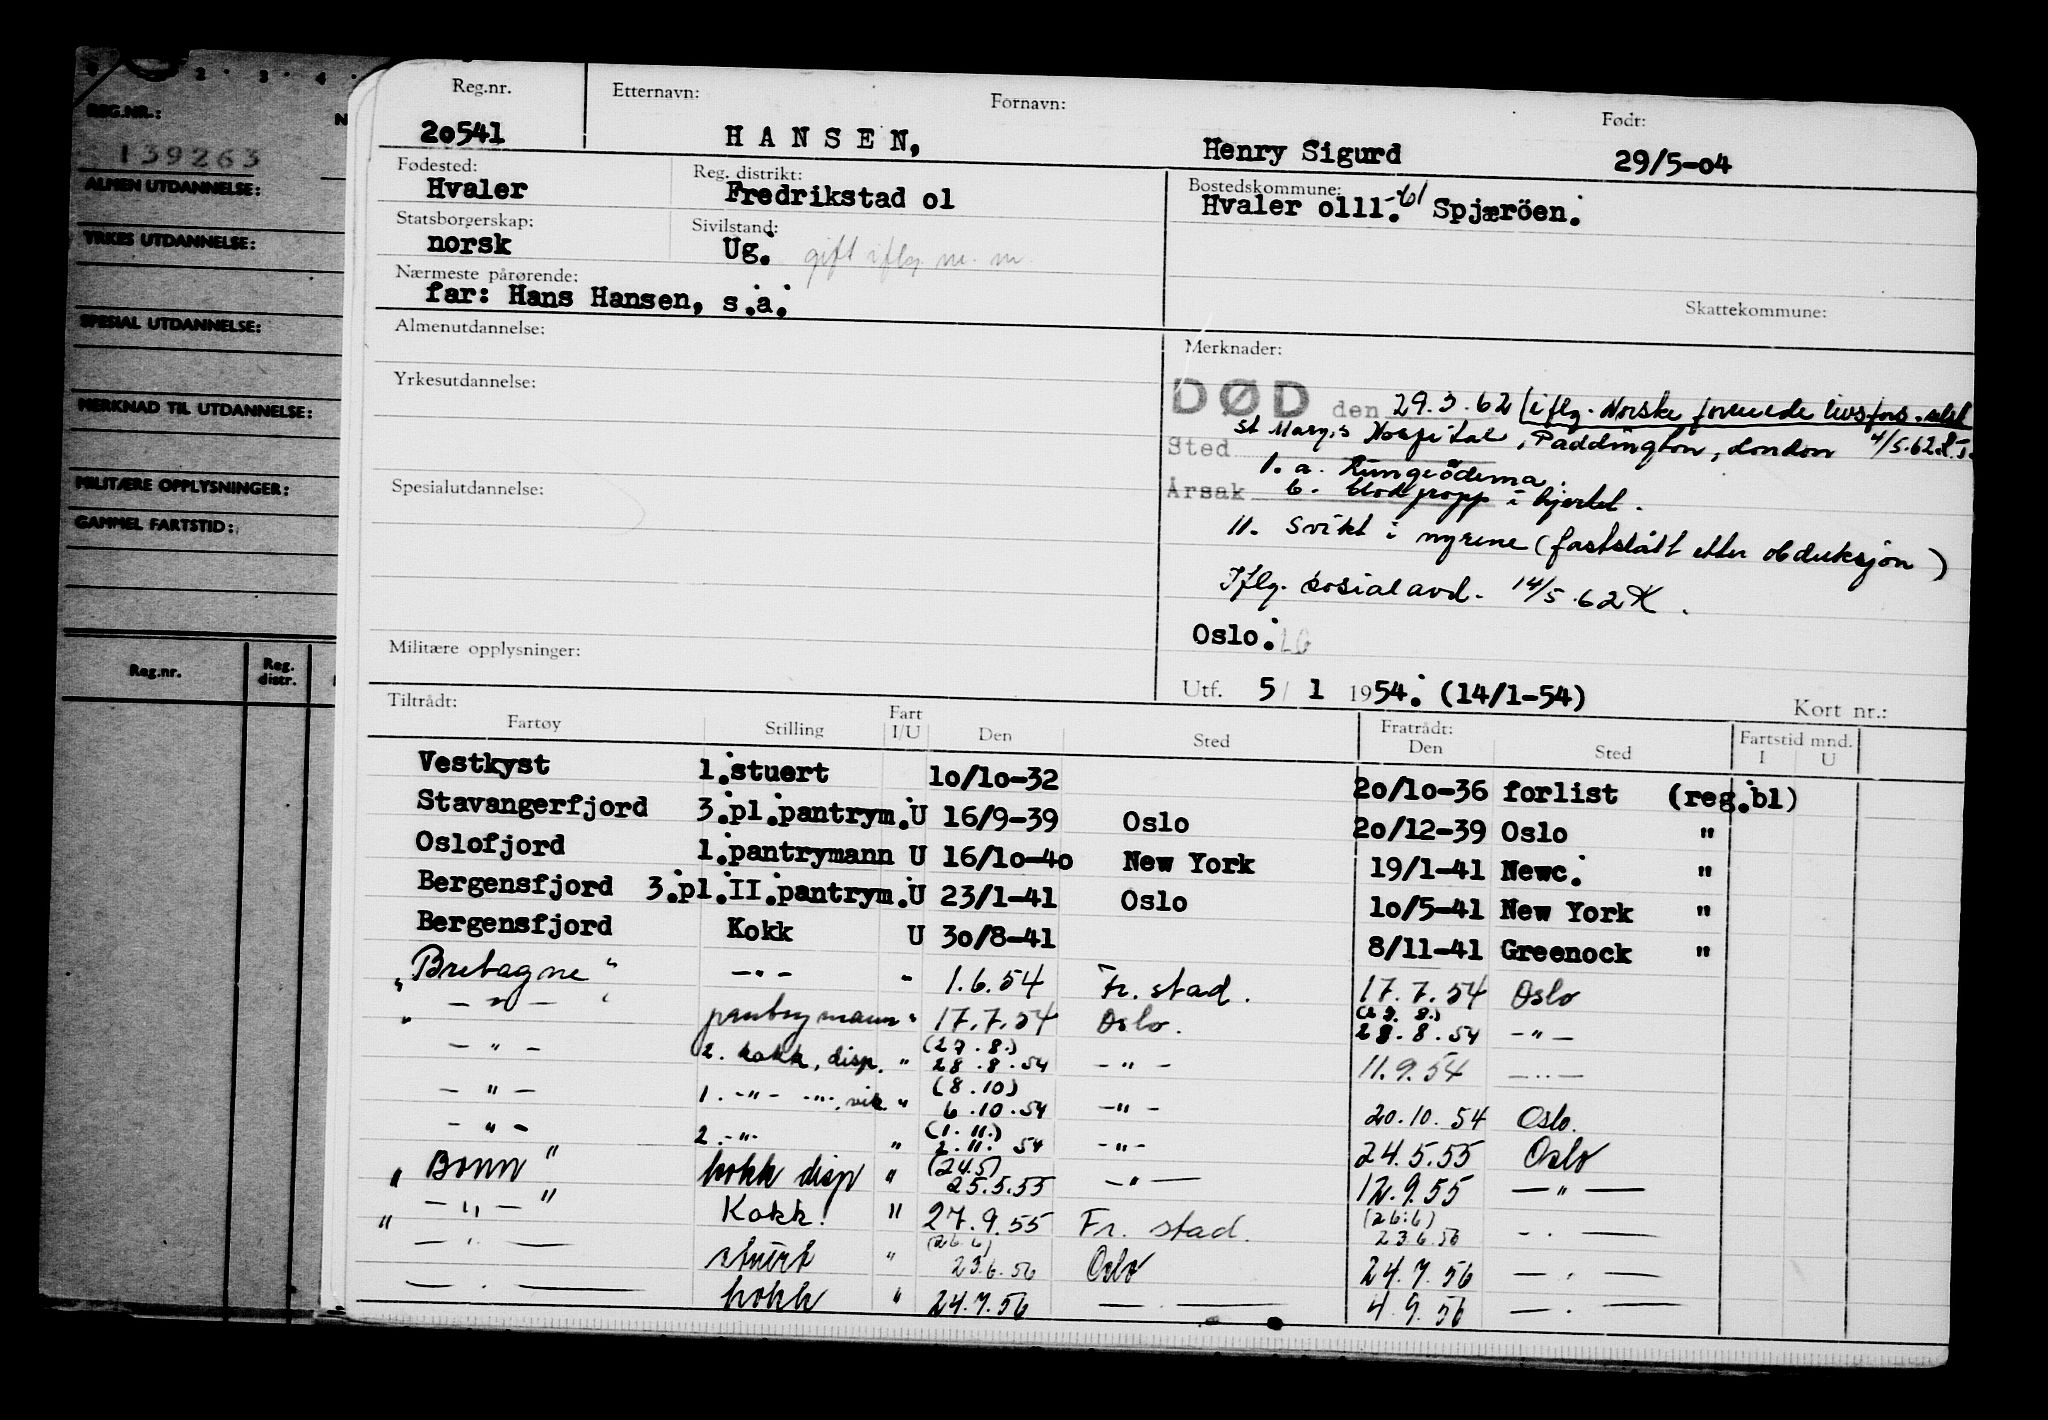 2 . 3 . 4 .
REG.NR.:
N
139263
ALMEN UTDANNELSE:
YRKES UTDANNELSE:
SPESIAL UTDANNELSE:
MERKNAD TIL UTDANNELSE:
MILITÆRE OPPLYSNINGER:
GAMMEL FARTSTID:
Reg.nr.
Reg. distr.
Reg.nr. Etternavn: Fornavn: Født:
20541 HANSEN, Henry Sigurd 29/5-04
Fødested: Reg. distrikt: Bostedskommune:
Hvaler Fredrikstad o1 Hvaler o111.-61 Spjæröen.
Statsborgerskap: Sivilstand:
norsk Ug. gift iflg. m. m.
Nærmeste pårørende:
far: Hans Hansen, s.a.
Skattekommune:
Almenutdannelse: Merknader:
Yrkesutdannelse:
DØD den 29.3.62 (iflg. Norske forenede livsfors.
Sted St Mary's Hospital, Paddington, London 4/5.62
Årsak 1. a. Lungeödema.
b. blodpropp i hjertet.
Spesialutdannelse:
11. Svikt i nyrene (fastslått etter obduksjon)
Iflg. sosialavd. 14/5.62 K.
Oslo.
Militære opplysninger:
Utf. 5/1 1954. (14/1-54)
Kort nr.:
Tiltrådt: Fartøy Stilling Fart I/U Den Sted Fratrådt: Den Sted Fartstid mnd. I U
Vestkyst 1.stuert 10/10-32 20/10-36 forlist (reg.bl)
Stavangerfjord 3.pl.pantrym.U 16/9-39 Oslo 20/12-39 Oslo "
Oslofjord 1.pantrymann U 16/10-40 New York 19/1-41 Newc. "
Bergensfjord 3.pl.II.pantrym.U 23/1-41 Oslo 10/5-41 New York "
Bergensfjord Kokk U 30/8-41 8/11-41 Greenock "
"Bretagne" -"- " 1.6.54 Fr.stad. 17.7.54 Oslo
" -"- " pantrymann " 17.7.54 Oslo. 28.8.54 -"-
-"- 2. kokk, disp. " (27.8.) 28.8.54 -"- 11.9.54 -"-
-"- 1. -"- -"-, vik. " (8.10) 6.10.54 -"- 20.10.54 Oslo.
-"- 2. -"- " (1.11.) 2.11.54 -"- 24.5.55 Oslo
"Bonn" kokk disp " (24.5) 25.5.55 -"- 12.9.55 -"-
" -"- " Kokk. " 27.9.55 Fr. stad. (26.6) 23.6.56 -"-
-"- stuert " (26.6) 23.6.56 Oslo 24.7.56 -"-
-"- kokk " 24.7.56 -"- 4.9.56 -"-